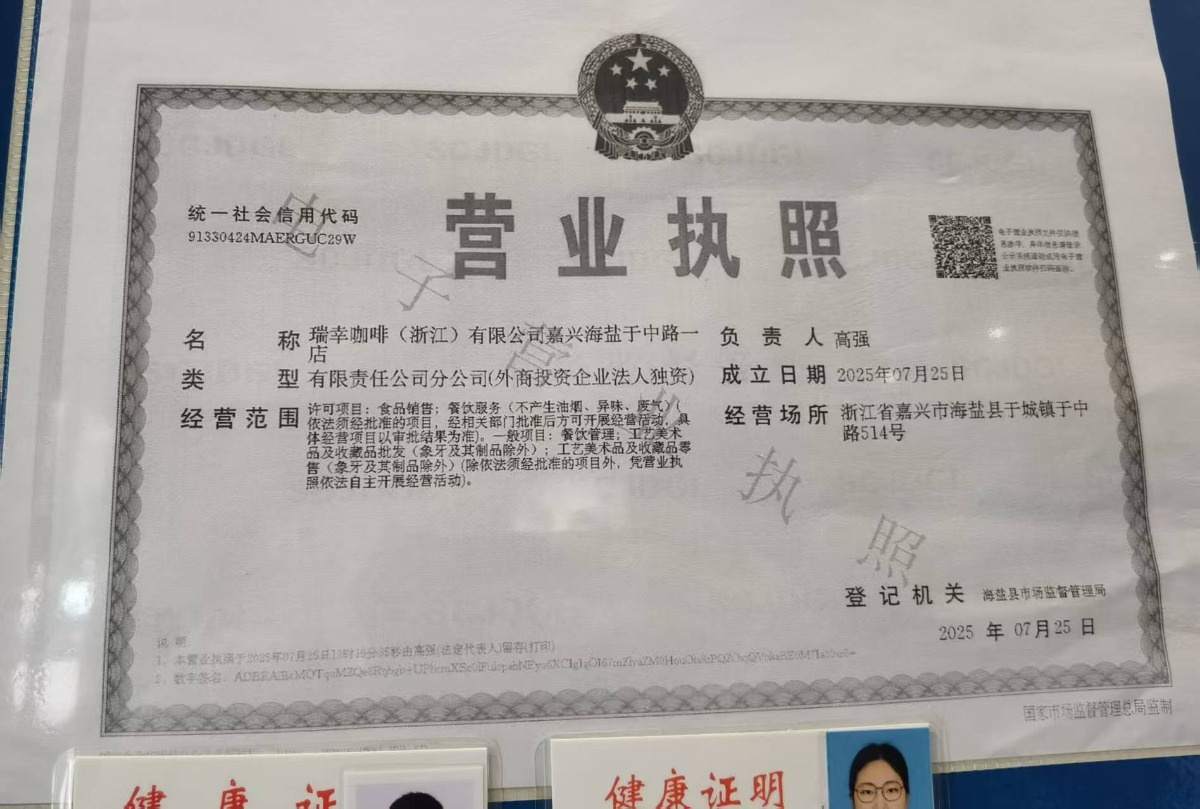 统一社会信用代码
91330424MAERGUC29W
营业执照
电子营业执照
名称 瑞幸咖啡（浙江）有限公司嘉兴海盐于中路一
店
类型 有限责任公司分公司(外商投资企业法人独资)
经营范围 许可项目：食品销售；餐饮服务（不产生油烟、异味、废气）(
依法须经批准的项目，经相关部门批准后方可开展经营活动，具
体经营项目以审批结果为准)。一般项目：餐饮管理；工艺美术
品及收藏品批发（象牙及其制品除外）；工艺美术品及收藏品零
售（象牙及其制品除外）(除依法须经批准的项目外，凭营业执
照依法自主开展经营活动)。
负责人 高强
成立日期 2025年07月25日
经营场所 浙江省嘉兴市海盐县于城镇于中
路514号
登记机关 海盐县市场监督管理局
2025 年 07月25 日
说明
1、本营业执照于2025年07月25日
由高强(法定代表人)留存(打印)
2、数字签名：
国家市场监督管理总局监制
健康证
健康证明